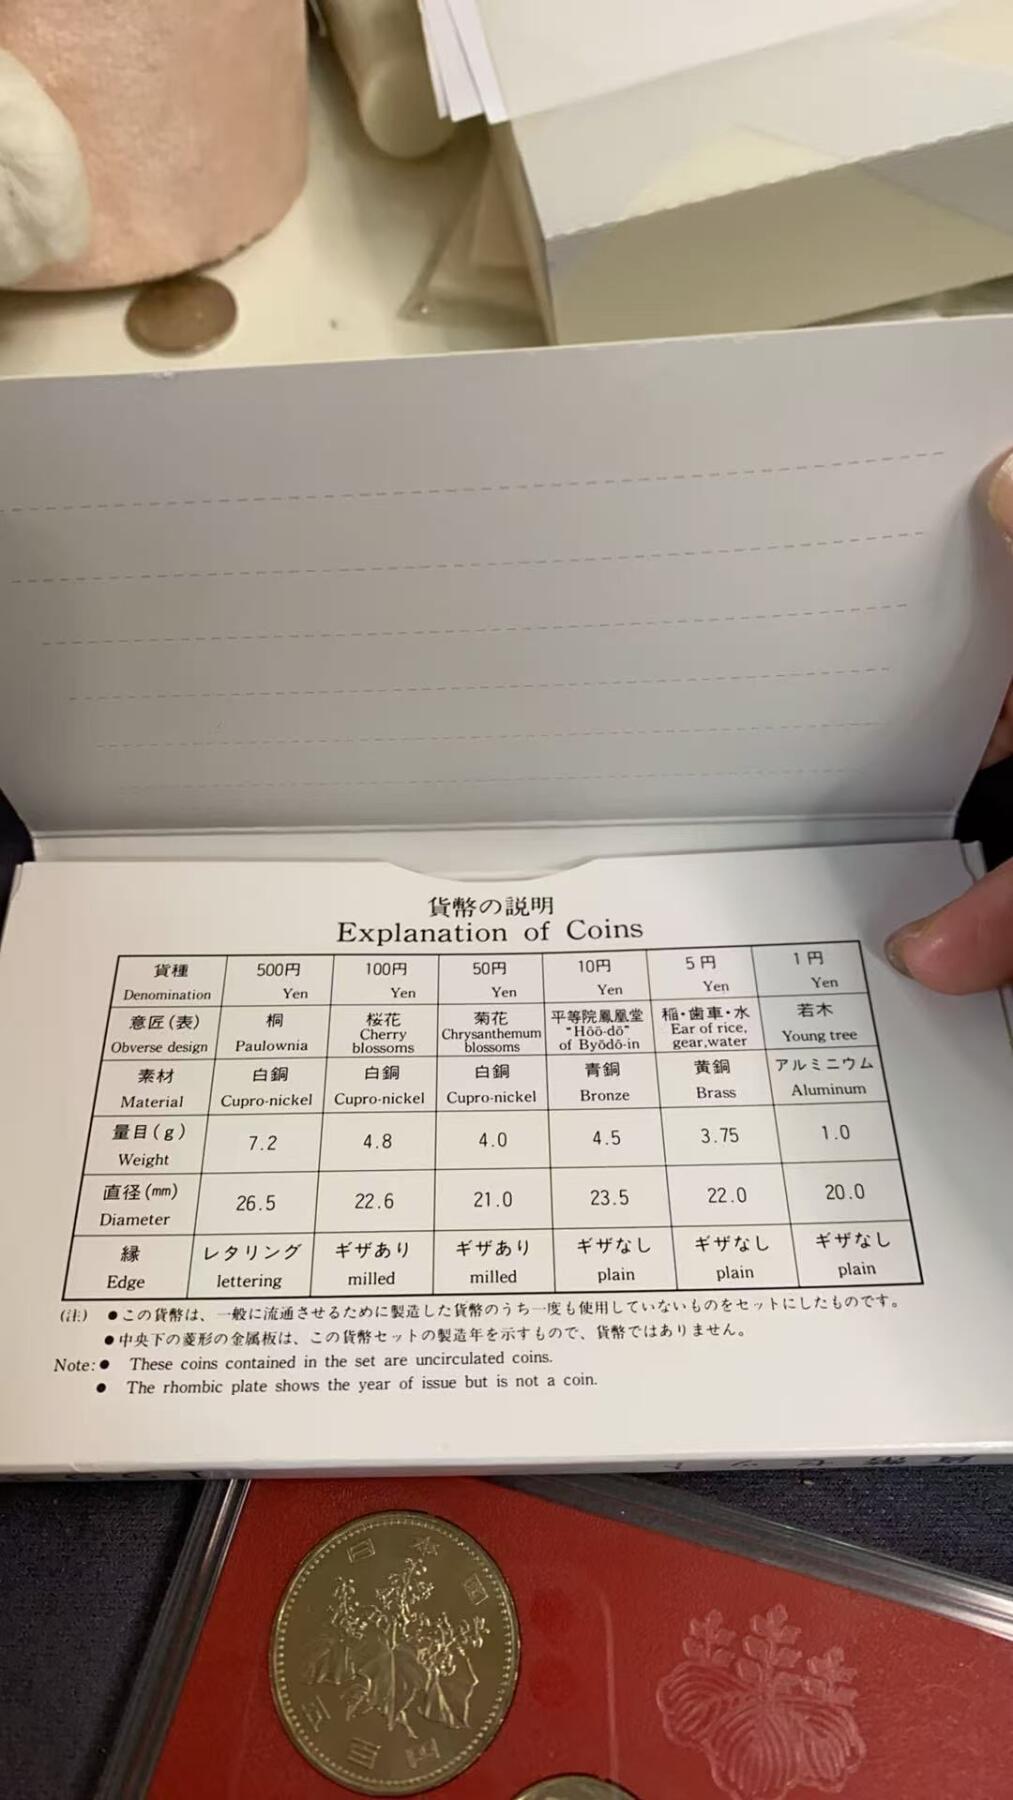 貨幣の説明
Explanation of Coins
貨種 500円 100円 50円 10円 5円 1円
Denomination Yen Yen Yen Yen Yen Yen
意匠(表) 桐 桜花 菊花 平等院鳳凰堂 稲・歯車・水 若木
Obverse design Paulownia Cherry blossoms Chrysanthemum blossoms "Hōō-dō" of Byōdō-in Ear of rice, gear,water Young tree
素材 白銅 白銅 白銅 青銅 黄銅 アルミニウム
Material Cupro-nickel Cupro-nickel Cupro-nickel Bronze Brass Aluminum
量目(g) 7.2 4.8 4.0 4.5 3.75 1.0
Weight
直径(mm) 26.5 22.6 21.0 23.5 22.0 20.0
Diameter
縁 レタリング ギザあり ギザあり ギザなし ギザなし ギザなし
Edge lettering milled milled plain plain plain
(注) ●この貨幣は、一般に流通させるために製造した貨幣のうち一度も使用していないものをセットにしたものです。
●中央下の菱形の金属板は、この貨幣セットの製造年を示すもので、貨幣ではありません。
Note:● These coins contained in the set are uncirculated coins.
● The rhombic plate shows the year of issue but is not a coin.
日本国
五百円